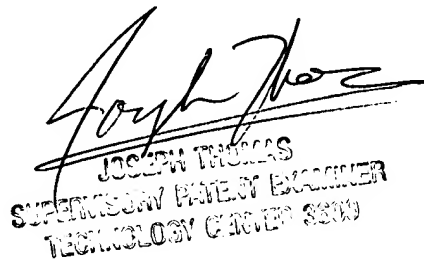 Joseph Thomas
JOSEPH THOMAS
SUPERVISORY PATENT EXAMINER
TECHNOLOGY CENTER 3600